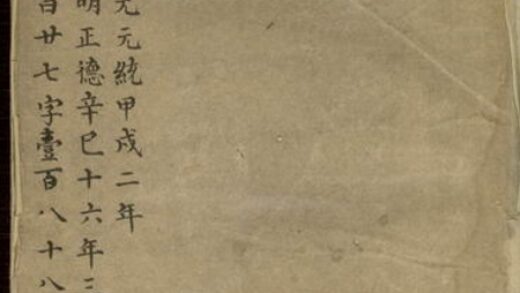 元元統甲戌二年
明正德辛巳十六年三
百廿七字壹百八十八